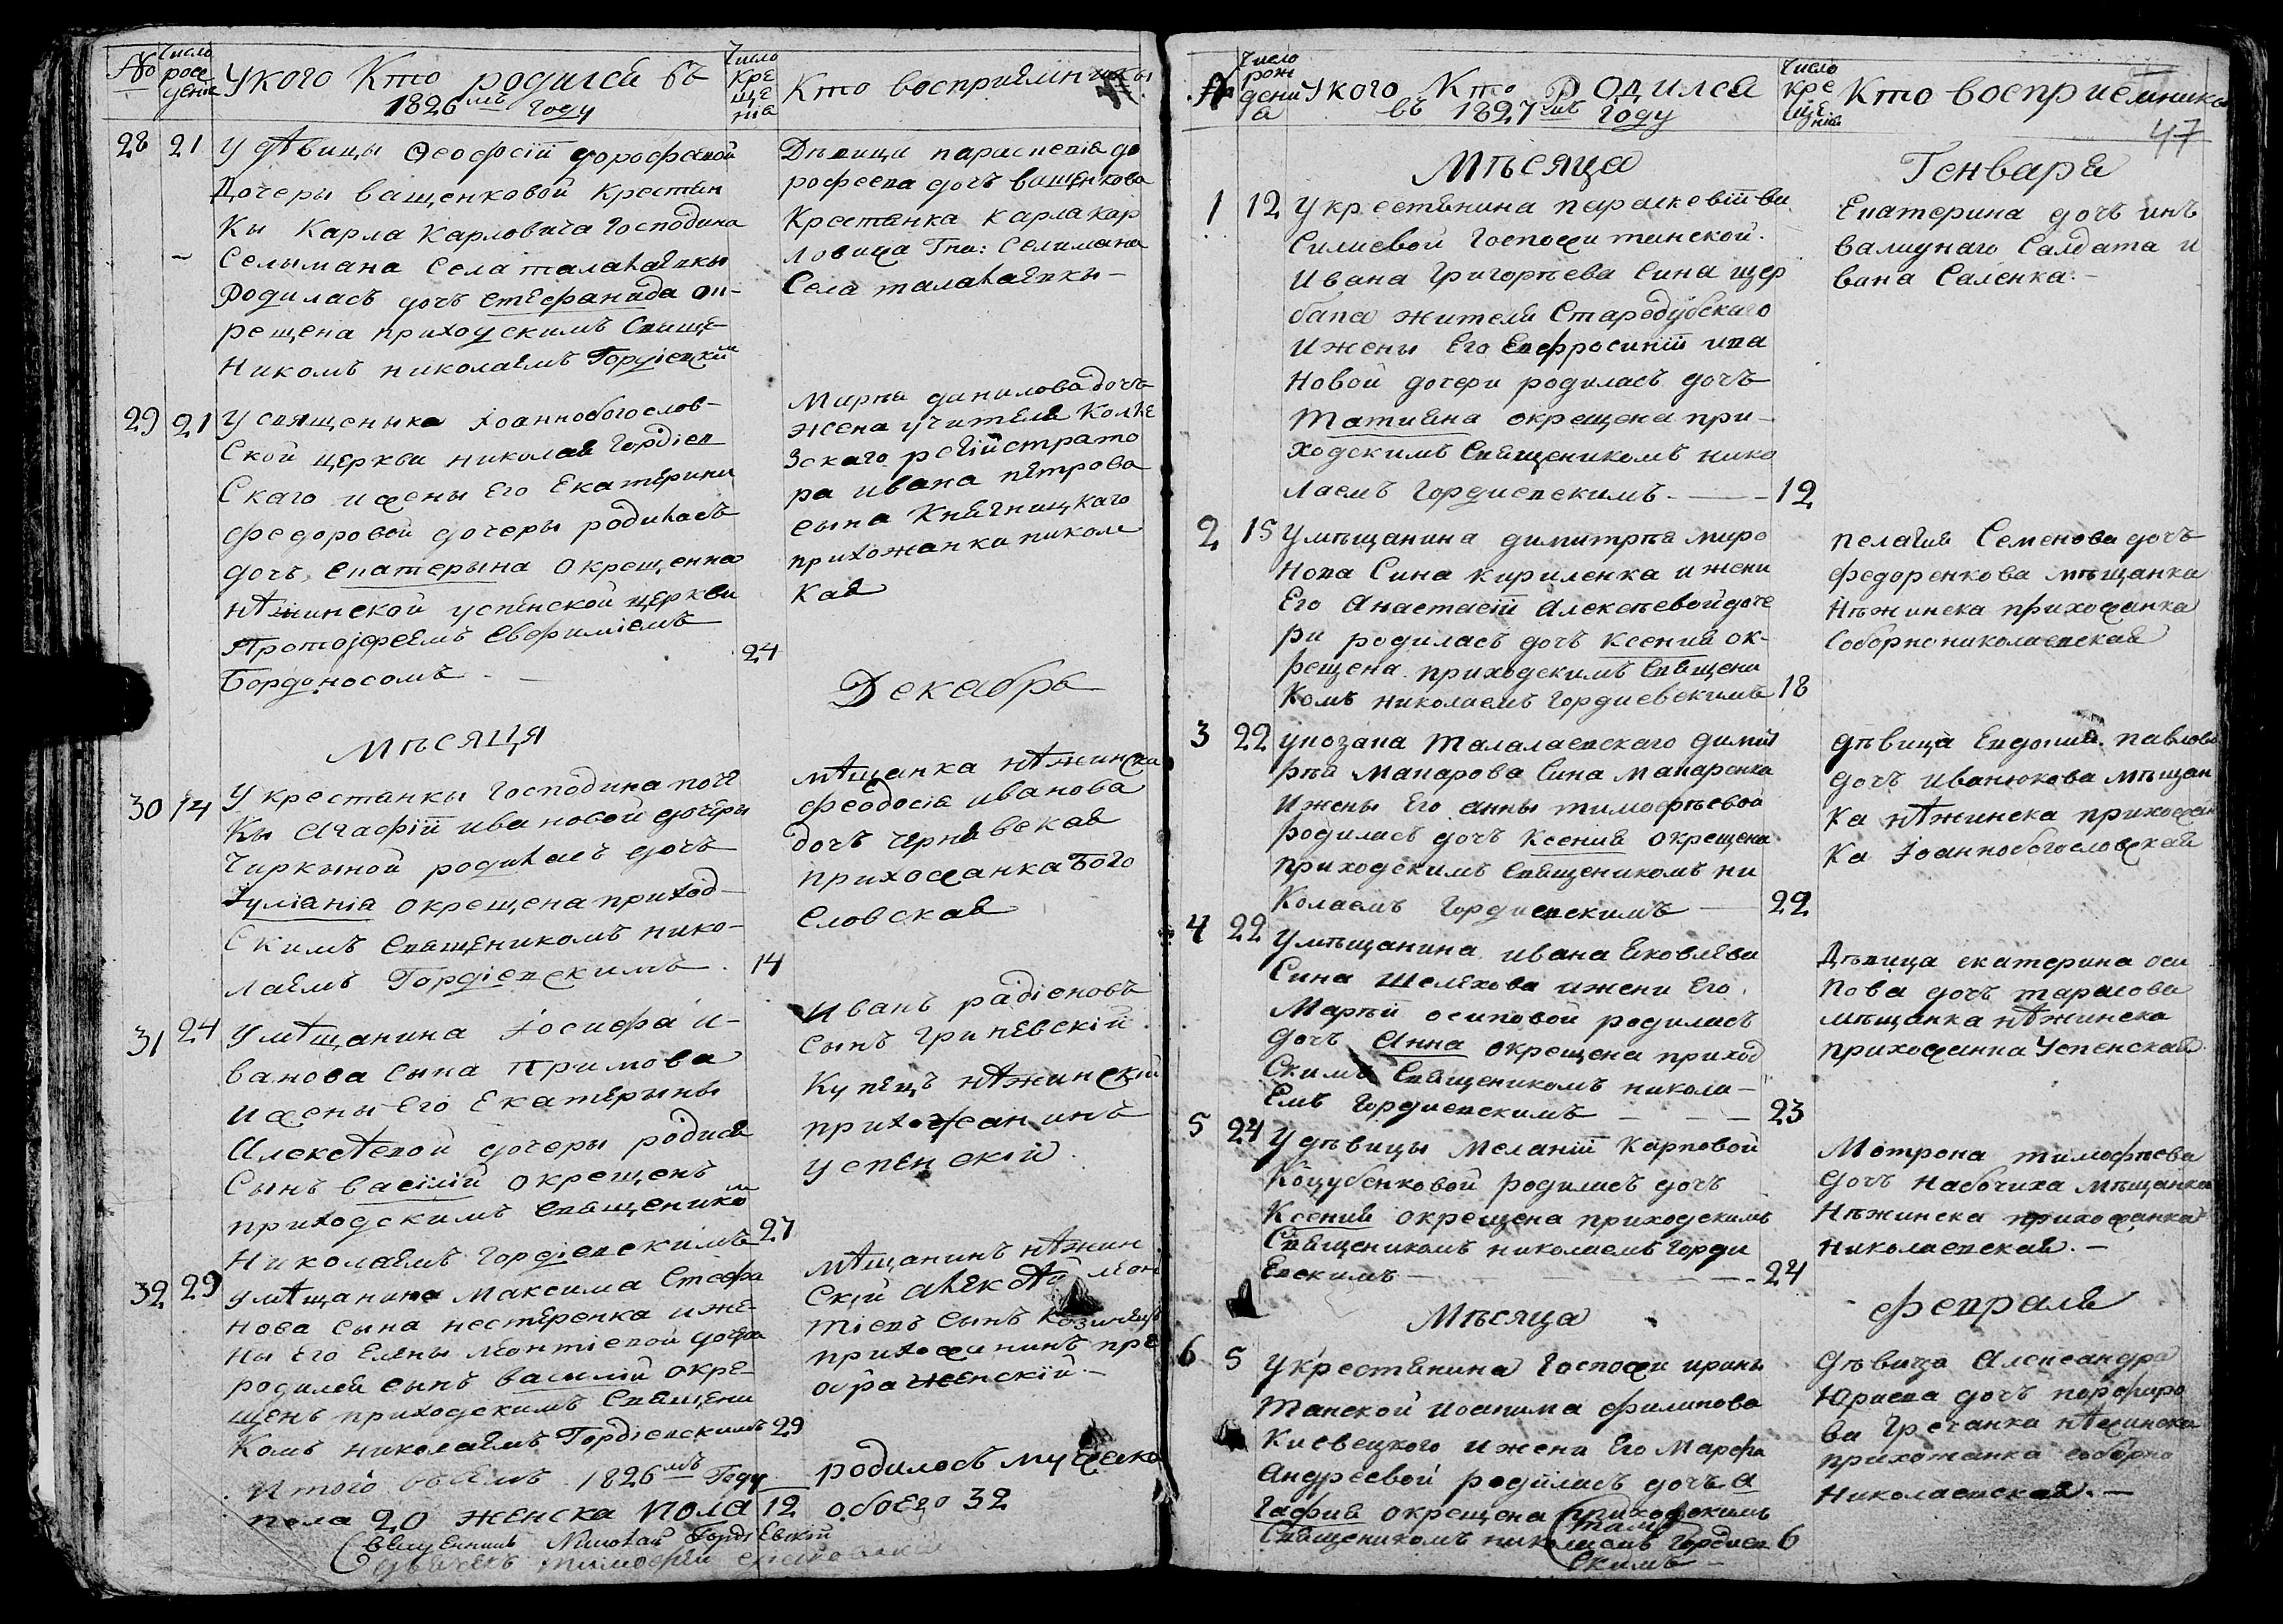 №
Число
рож
дение
У кого Кто родился въ
1826мъ Году
Число
кре
ще
нія
Кто восприемники
28 21
У дѣвицы Ѳеодосіи дорофеевой
Дочеры ващенковой крестян
Ки Карла Карловича Господина
Селимана Села талалаевки
Родилась дочъ Стефанида ок-
рещена приходскимъ Свяще-
Никомъ николаемъ Гордіевскім
Дѣвица параскевія до
рофеева дочъ ващенкова
Крестянка карла кар
ловича Гна: Селимана
Села талалаевки-
29 21
У священника Іоаннобогослов-
Ской церкви николая Гордіев
Скаго и жены Его Екатерини
федоровой дочеры родилась
дочъ, екатерына окрещенна
нѣжинской успенской церкви
Протоіереемъ Евфиміемъ
Бордоносомъ
24
Марѳа данилова дочъ
жена учителяКолѣ
зскаго регiистрато
ра ивана петрова
сына Княгницкаго
прихожанка николаев
Кая
Мѣсяця
Декабря
30 14
У крестанки Господина поче
Ки Агафіи ивановой дочеры
Чиркиной родилась дочъ
Іуліанія окрещена приход-
Скимъ Священикомъ нико-
лаемъ Гордіевскимъ. 14
мѣщанка нѣжинска
феодосія иванова
дочъ чернявская
прихожанка Бого
словская
31 24
У мѣщанина Іосифа и-
ванова сына Примова
и жены Его Екатерыны
Алексѣевой дочеры родися
Сынъ василій окрещенъ
приходскимъ священико
Николаемъ Гордіевскимъ 27
Иванъ радіоновъ
сынъ гриневскій
Купецъ нѣжинскій
прихожанинъ
успенскій
32 29
у мѣщанина Максима Стефа
нова сына нестеренка и же-
ны Его Елены леонтіевой дочеры
родился сынъ василій окре-
щенъ приходскимъ Священи
Комъ николаемъ Гордіевскимъ 29
мѣщанинъ нѣжин
скій алексѣй леон
тіевъ сынъ Козинецъ
прихожанинъ пре
ображенскій-
Итого всѣмъ 1826мъ Году родилосъ мужеска
пола 20 женска пола 12 обоего 32
Священникъ Николай Гордіевскій
дьячекъ тимофей
№
Число
рож
дени
я
У кого Кто Родился
въ 1827мъ Году
Число
кре
ще
нія
Кто восприемники
47
Мѣсяца
Генваря
1 12
У крестянина параскевіи ва
силиевой Госпожи танской.
Ивана Григорѣева Сина щер
бака жителя Стародубскаго
И жены Его Евфросиніи ива
новой дочери родилась дочъ
Татияна окрещена при-
ходскимъ Священикомъ нико
лаемъ Гордиевскимъ. - 12
Екатерина дочъ инъ
валиднаго Салдата и
вана Саленка.-
2 15
У мѣщанина димитрѣя миро
нова Сина кириленка и жени
Его Анастасіи Алексѣевой доче
ри родилась дочъ ксения ок-
рещена приходскимъ Священи
Комъ николаемъ Гордиевскимъ 18
пелагия Семенова дочъ
федоренкова мѣщанка
Нѣжинска прихожанка
Соборно николаевская
3 22
у козака Талалаевскаго димит
рѣя макарова Сина макаренка
И жены Его анны тимофѣевой
родилась дочъ ксения окрещена
приходскимъ Священикомъ ни
Колаемъ Гордиевскимъ - 22
дѣвица Евдокия павлова
дочъ иванюкова мѣщан
ка нѣжинска прихожан
ка Іоаннобогословская
4 22
У мѣщанина ивана Яковлева
Сина Шелехова и жени Его
Марѣи осиповой родилась
дочъ Анна окрещена приход
Скимъ Священикомъ никола-
емъ Гордиевскимъ - 23
Дѣвица екатерина оси
пова дочъ тарасова
мѣщанка нѣжинска
прихожанка Успенская
5 24
У дѣвицы меланіи Карповой
Коцубенковой родилась дочъ
Ксения окрещена приходскимъ
Священикомъ николаемъ Горди
Евскимъ - 24
Мотрона тимофѣева
дочъ Набочиха мѣщанка
Нѣжинска прихожанка
Николаевская.-
Мѣсяца
февраля
6 5
У крестянина Госпожи ирины
Танской иоакима филипова
Киевецкого и жени Его Марфы
Андреевой родилась дочъ а
гафия окрещена приходскимъ
Священикомъ николаемъ Гордиев 6
скимъ-
Дѣвица Александра
Юриева дочъ порфиро
ва Гречанка нѣжинска
прихожанка соборно
Николаевская.-